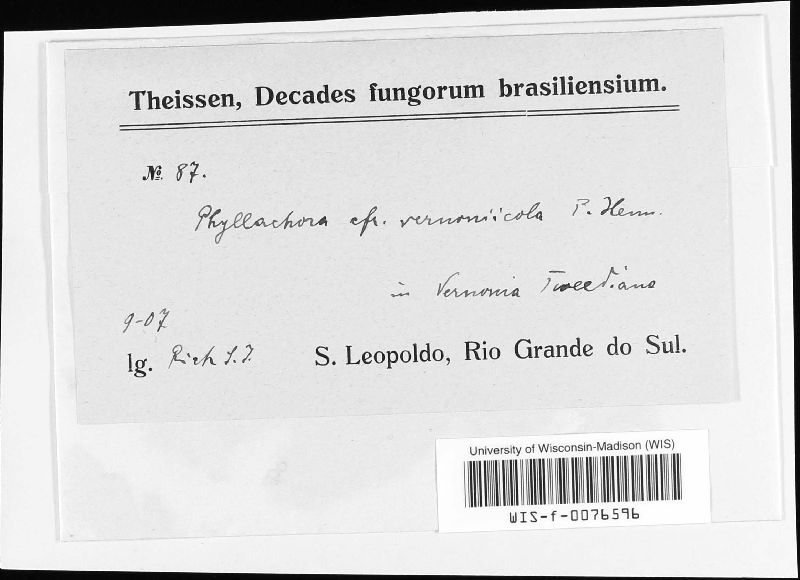 Theissen, Decades fungorum brasiliensium.
№. 87.
Phyllachora cfr. vernoniicola P. Henn.
in Vernonia Tweediana
9-07
lg. Rick S.J. S. Leopoldo, Rio Grande do Sul.
University of Wisconsin-Madison (WIS)
WIS-f-0076596